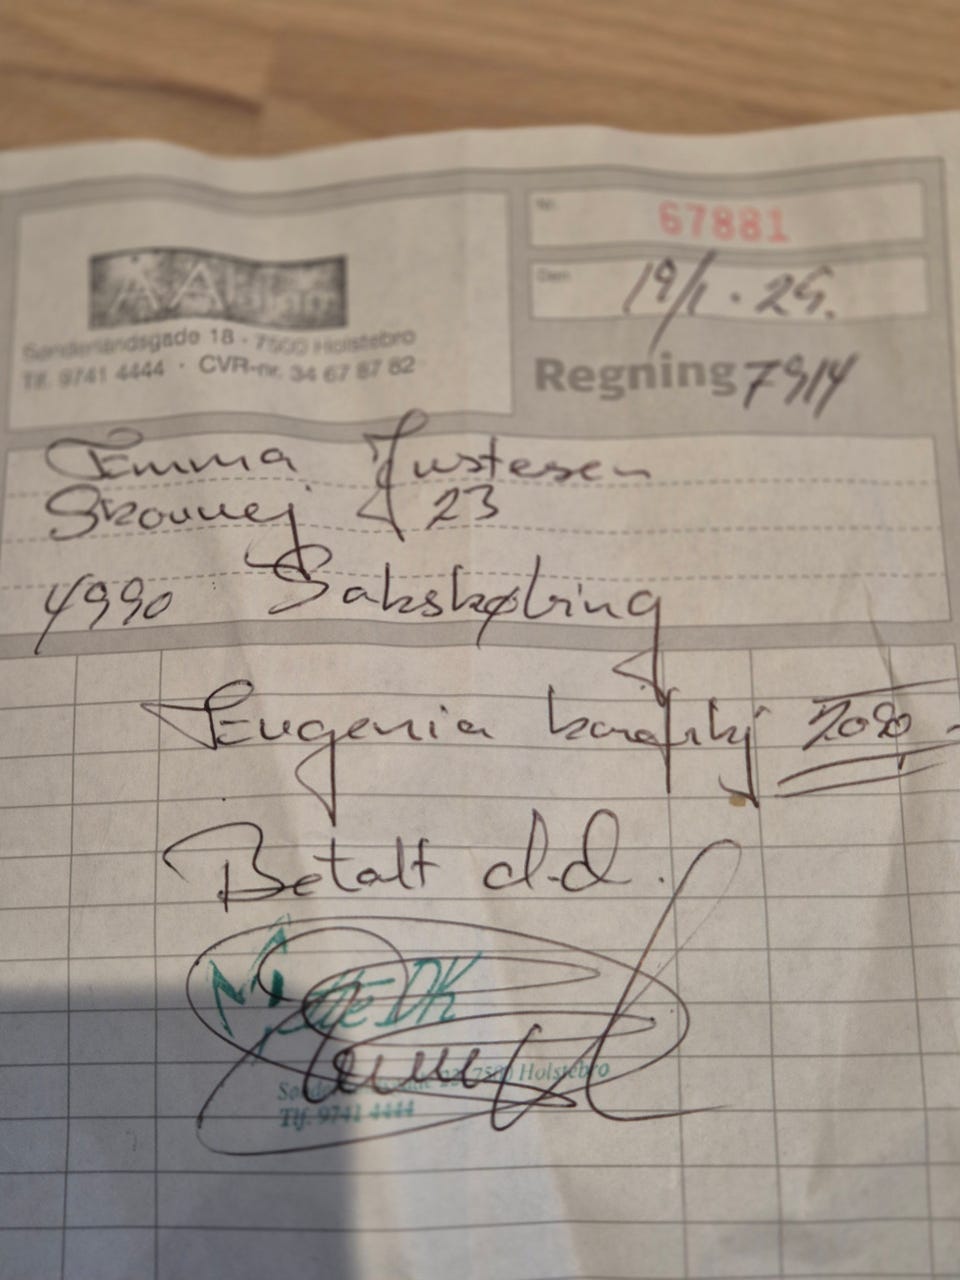 Nr.
67881
Den
19/1.25.
AA
Sønderlandsgade 18 - 7500 Holstebro
Tlf. 9741 4444 · CVR-nr. 34 67 87 82
Regning 7914
Emma Justesen
Skovvej 23
4990 Sakskøbing
Eugenia
Betalt d.d.
DK
7500 Holstebro
Tlf. 9741 4444